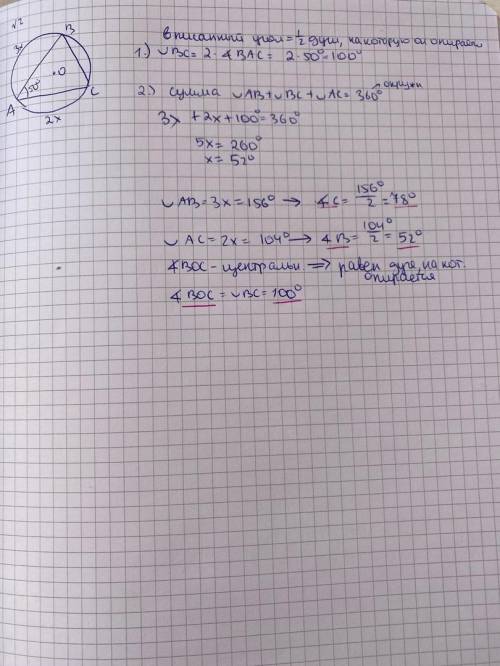 √2
B
3x
O
50°
A
C
2x
вписанный угол = 1/2 дуги, на которую он опирается
1.) ◡BC = 2·∢BAC = 2·50° = 100°
2) сумма ◡AB+◡BC+◡AC = 360° окружн
3x + 2x + 100° = 360°
5x = 260°
x = 52°
◡AB = 3x = 156° → ∢C = 156°/2 = 78°
◡AC = 2x = 104° → ∢B = 104°/2 = 52°
∢BOC - центральн. ⟹ равен дуге, на кот.
опирается
∢BOC = ◡BC = 100°